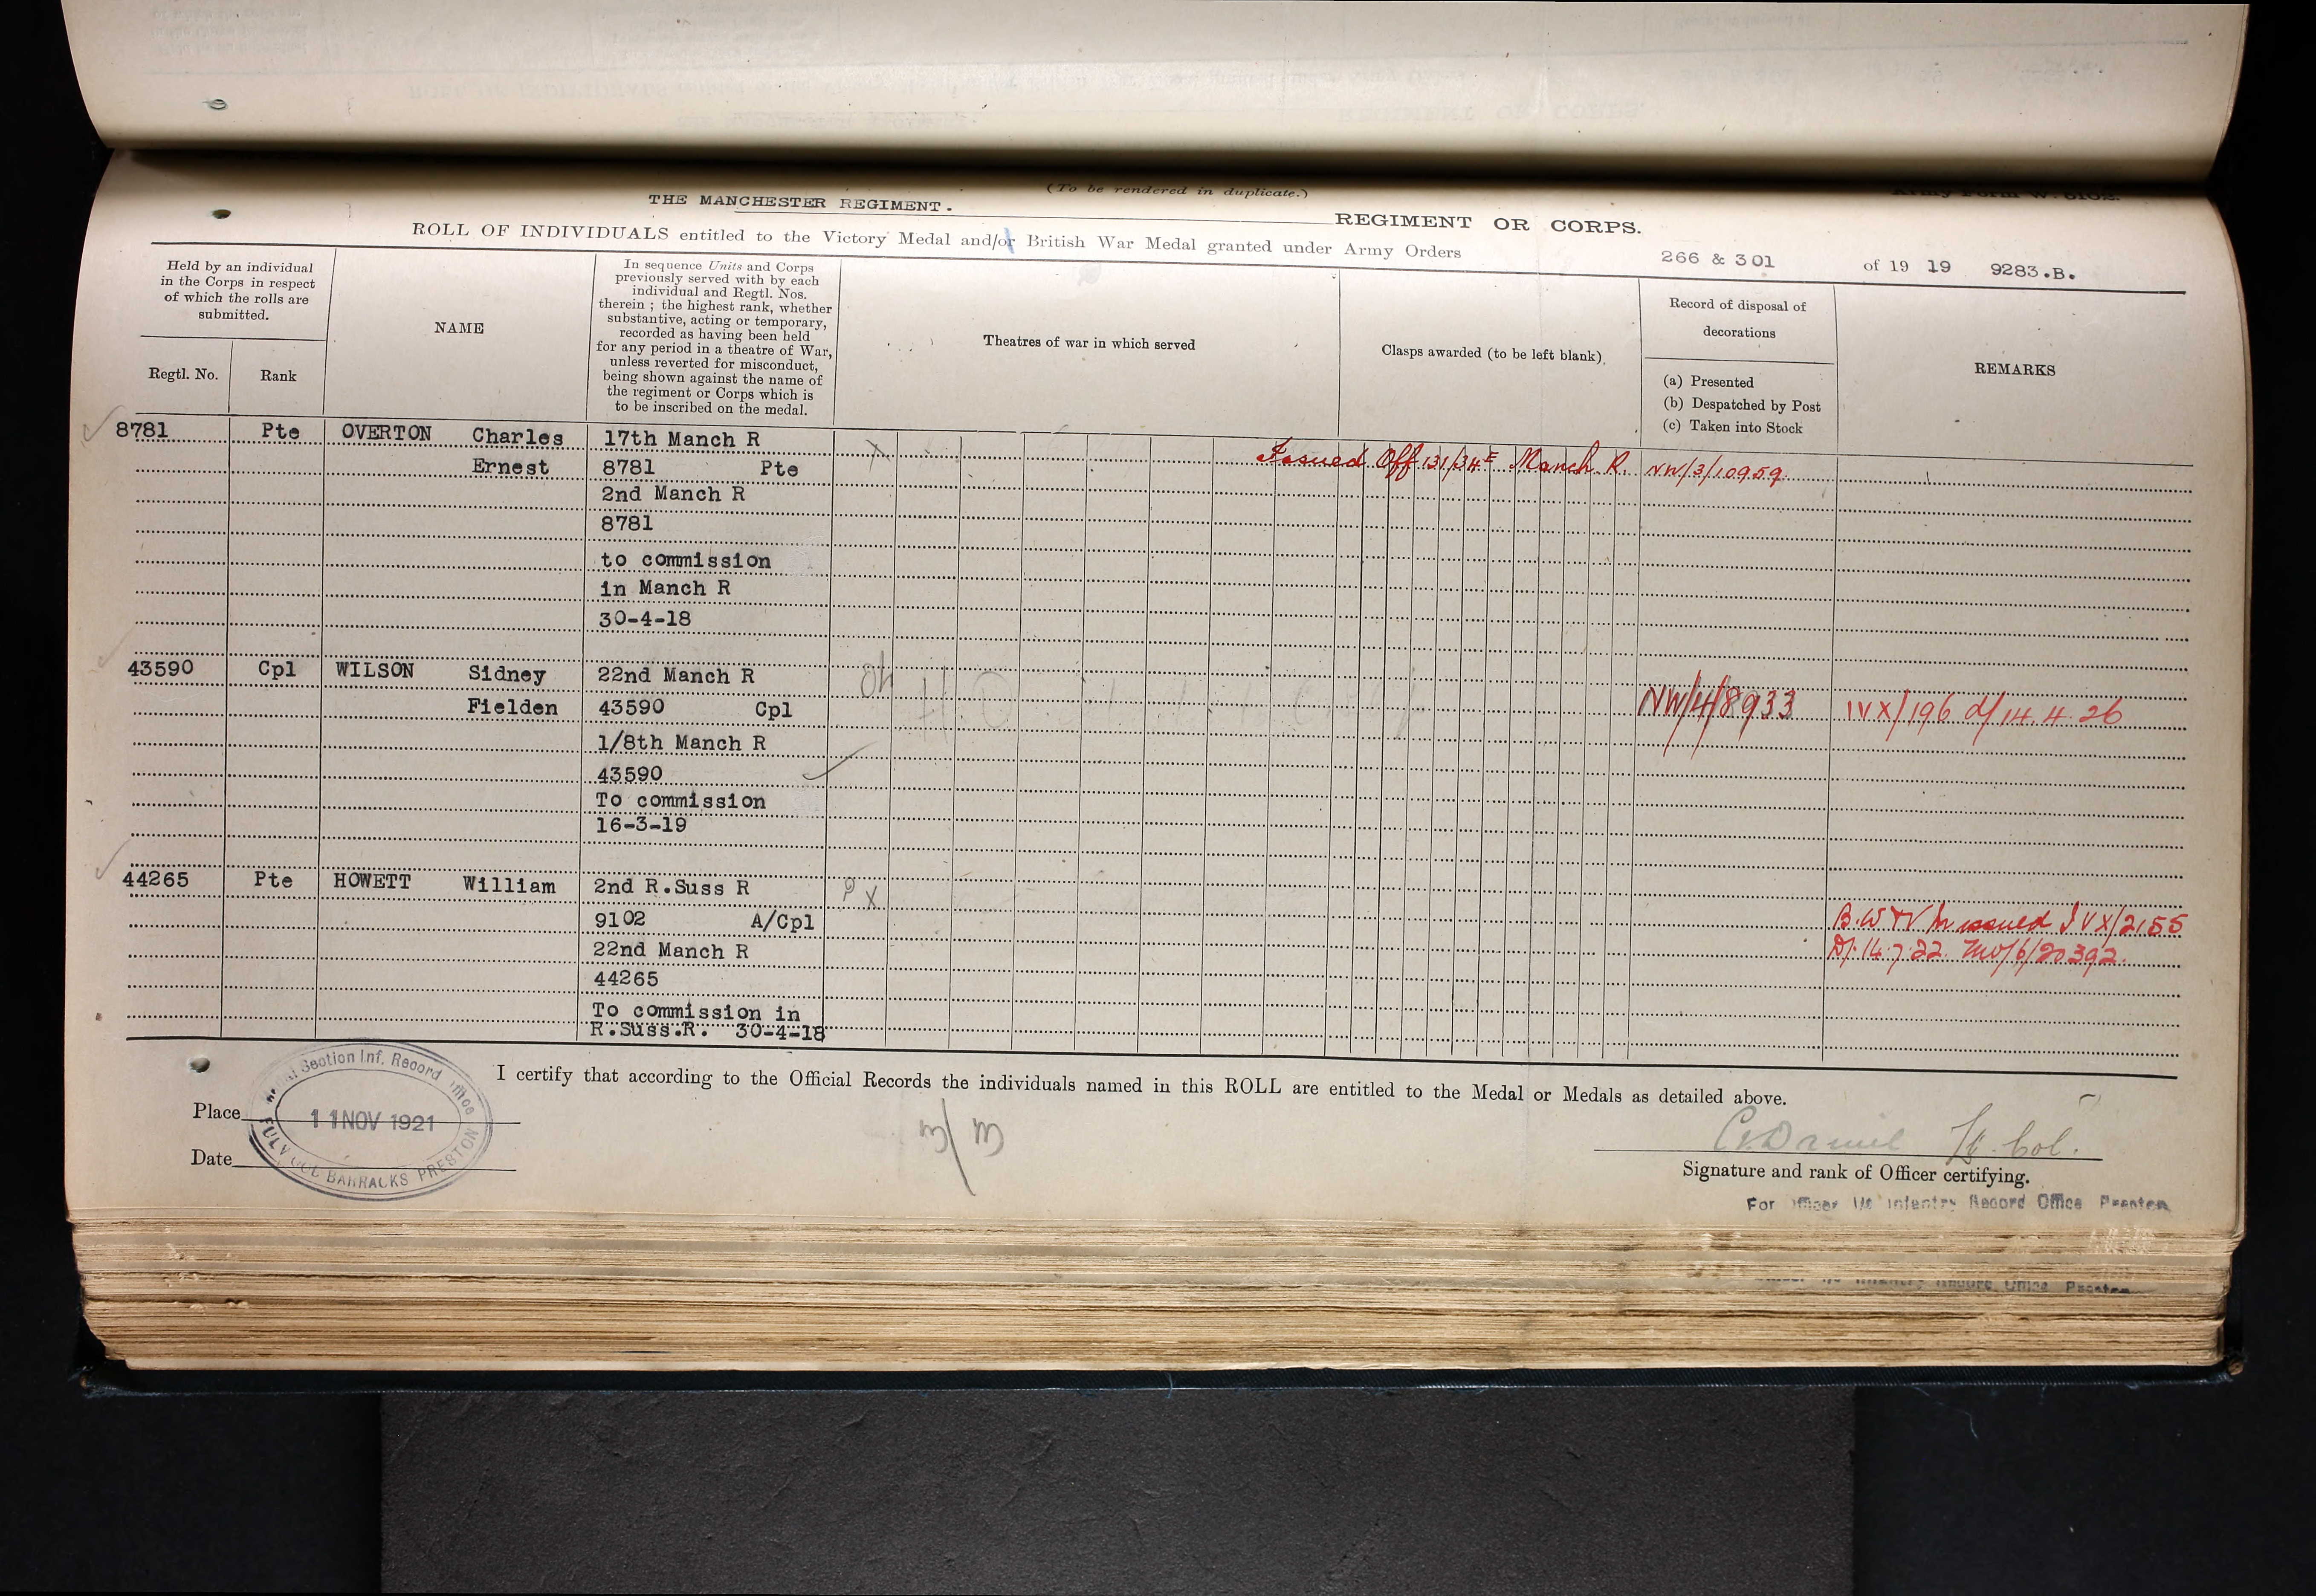 (To be rendered in duplicate.)
THE MANCHESTER REGIMENT.
REGIMENT OR CORPS.
ROLL OF INDIVIDUALS entitled to the Victory Medal and/or British War Medal granted under Army Orders 266 & 301 of 1919 9283.B.
Held by an individual
in the Corps in respect
of which the rolls are
submitted.
Regtl. No.
Rank
NAME
In sequence Units and Corps
previously served with by each
individual and Regtl. Nos.
therein ; the highest rank, whether
substantive, acting or temporary,
recorded as having been held
for any period in a theatre of War,
unless reverted for misconduct,
being shown against the name of
the regiment or Corps which is
to be inscribed on the medal.
Theatres of war in which served
Clasps awarded (to be left blank).
Record of disposal of
decorations
(a) Presented
(b) Despatched by Post
(c) Taken into Stock
REMARKS
8781 Pte OVERTON Charles 17th Manch R
Ernest 8781 Pte Issued Off 131/34E Manch R. NW/3/10959
2nd Manch R
8781
to commission
in Manch R
30-4-18
43590 Cpl WILSON Sidney 22nd Manch R
Fielden 43590 Cpl NW/4/8933 IVX/196 d/14.4.26
1/8th Manch R
43590
To commission
16-3-19
44265 Pte HOWETT William 2nd R.Suss R
9102 A/Cpl B.W & V M issued IVX/2155
22nd Manch R D/.14.7.22.
44265
To commission in
R.Suss.R. 30-4-18
I certify that according to the Official Records the individuals named in this ROLL are entitled to the Medal or Medals as detailed above.
Section Inf. Record Office
11 NOV 1921
FULWOOD BARRACKS PRESTON
Place
Date
Daniel Lt. Col.
Signature and rank of Officer certifying.
For Officer i/c Infantry Record Office Preston
Infantry Record Office Preston